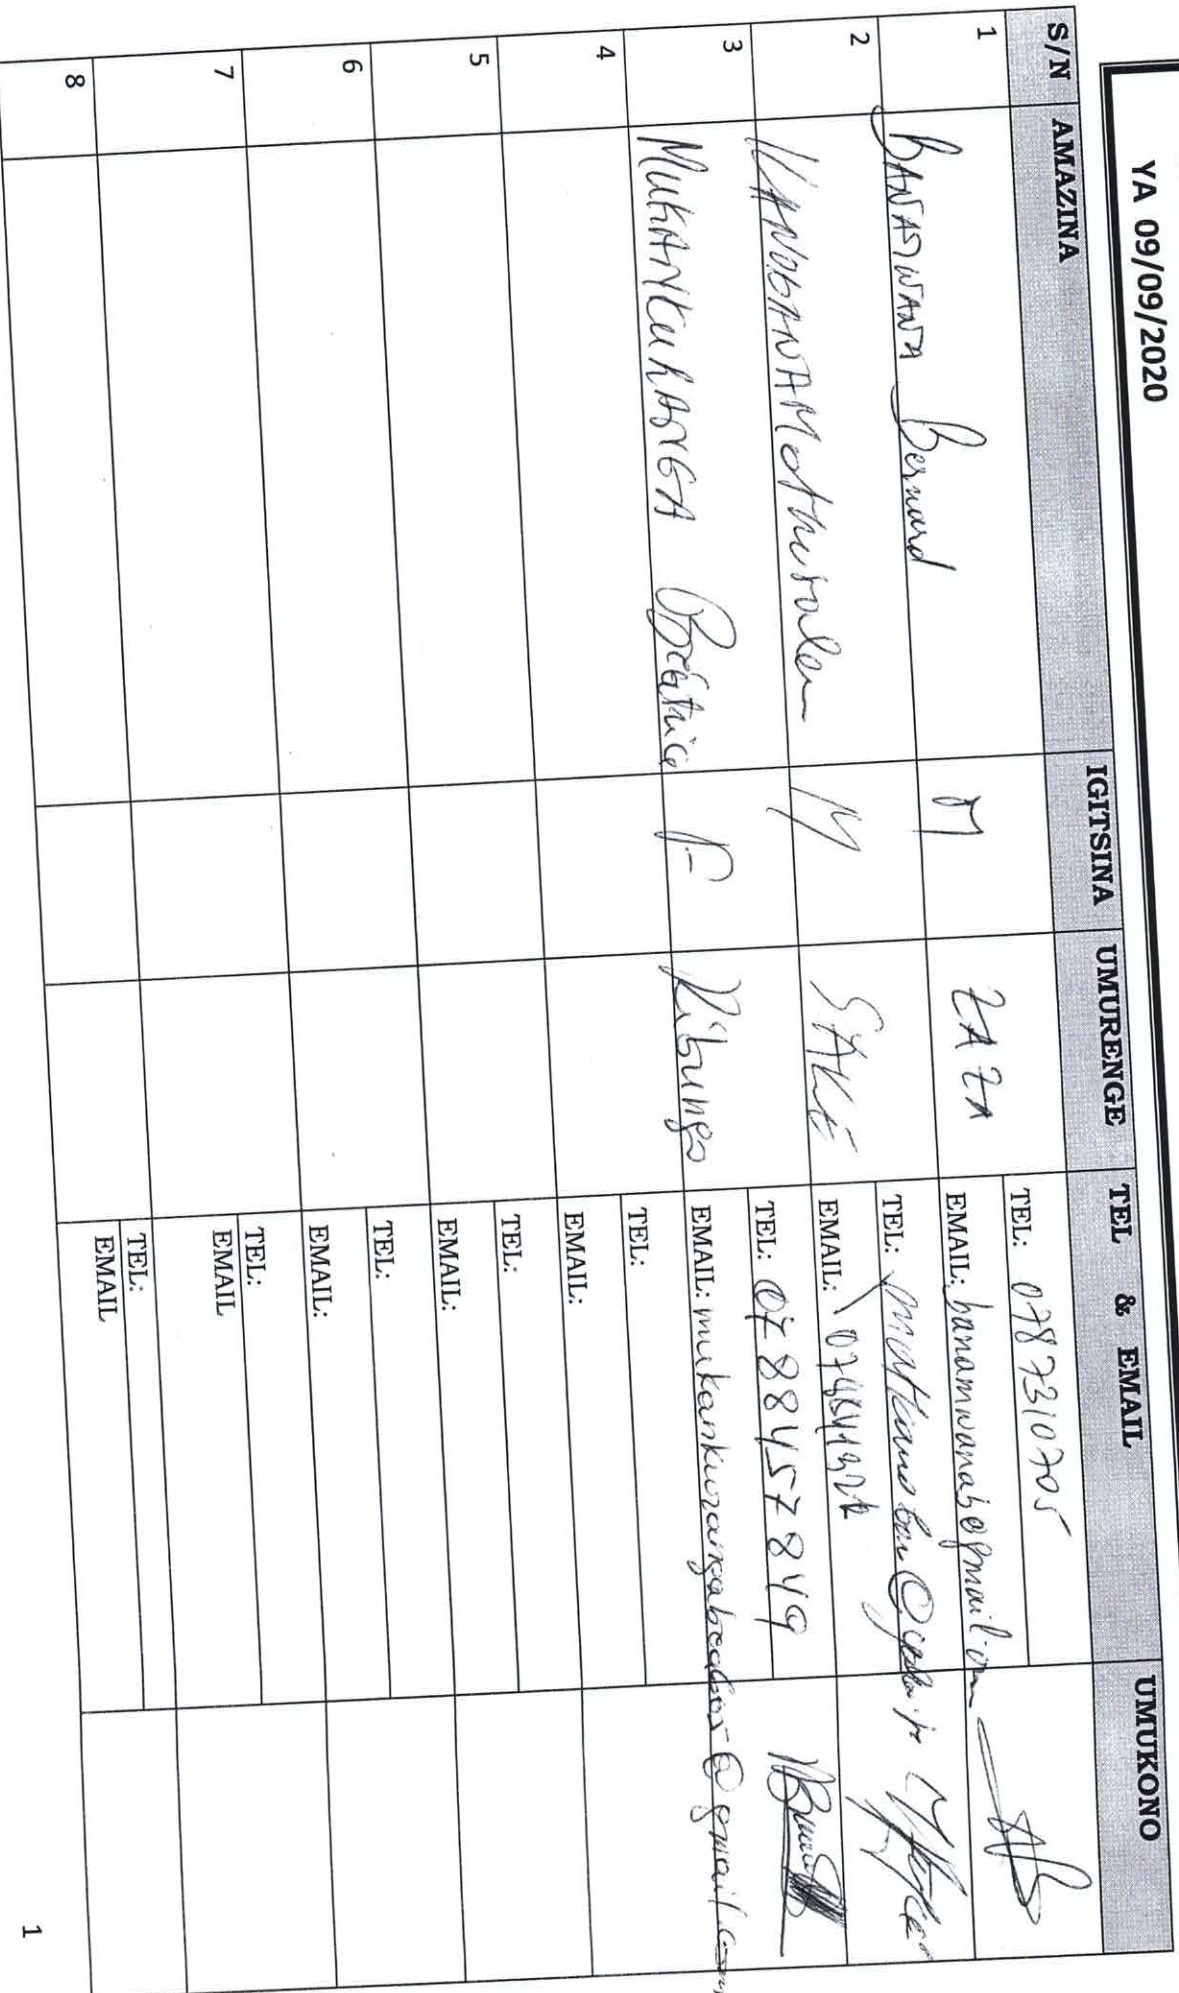 YA 09/09/2020
S/N AMAZINA IGITSINA UMURENGE TEL & EMAIL UMUKONO
1 BANAMWANA Bernard M ZAZA TEL: 0787310705
EMAIL: banamwanab@gmail.com
2 Methusalem M SAKE TEL:
EMAIL:
3 MUKANKURANGA Béatrice F Kibungo TEL: 0788457849
EMAIL: mukankurangabeabos@gmail.com
4 TEL:
EMAIL:
5 TEL:
EMAIL:
6 TEL:
EMAIL:
7 TEL:
EMAIL
8 TEL:
EMAIL
1